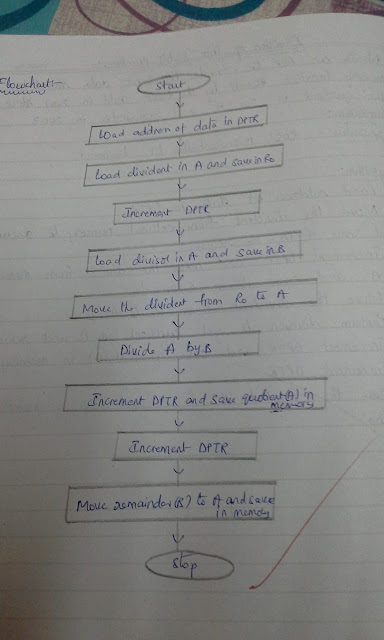 Flowchart:-
Start
Load address of data in DPTR
Load divident in A and save in R0
Increment DPTR
Load divisor in A and save in B
Move the divident from R0 to A
Divide A by B
Increment DPTR and save quotient(A) in
memory
Increment DPTR
Move remainder(B) to A and save
in memory
Stop